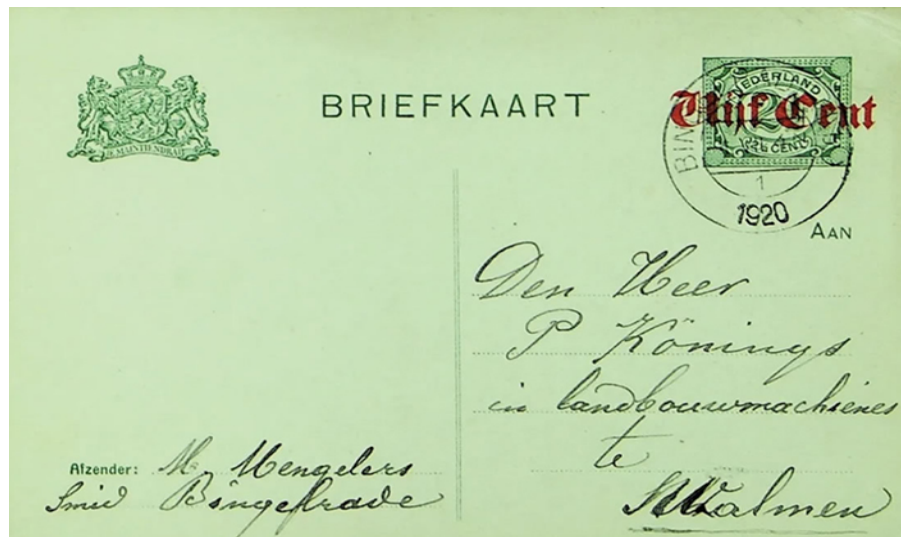 BRIEFKAART
JE MAINTIENDRAI
NEDERLAND
2½ CENT
Vijf Cent
BIN
1
1920
AAN
Den Heer
P Könings
in landbouwmachienes
te
Swalmen
Afzender: M. Mengelers
Smid Bingelrade